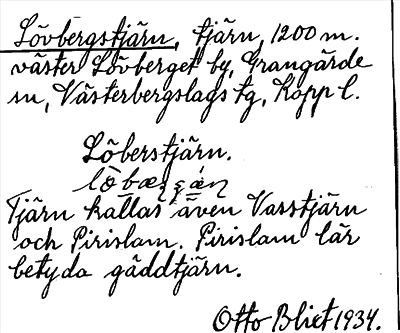 Lövbergstjärn, tjärn, 1200 m.
väster Lövberget by, Grangärde
sn, Västerbergslags tg, Kopp l.
Löberstjärn.
Tjärn kallas även Vasstjärn
och Pirislam. Pirislam lär
betyda gäddtjärn.
Otto Blixt 1934.